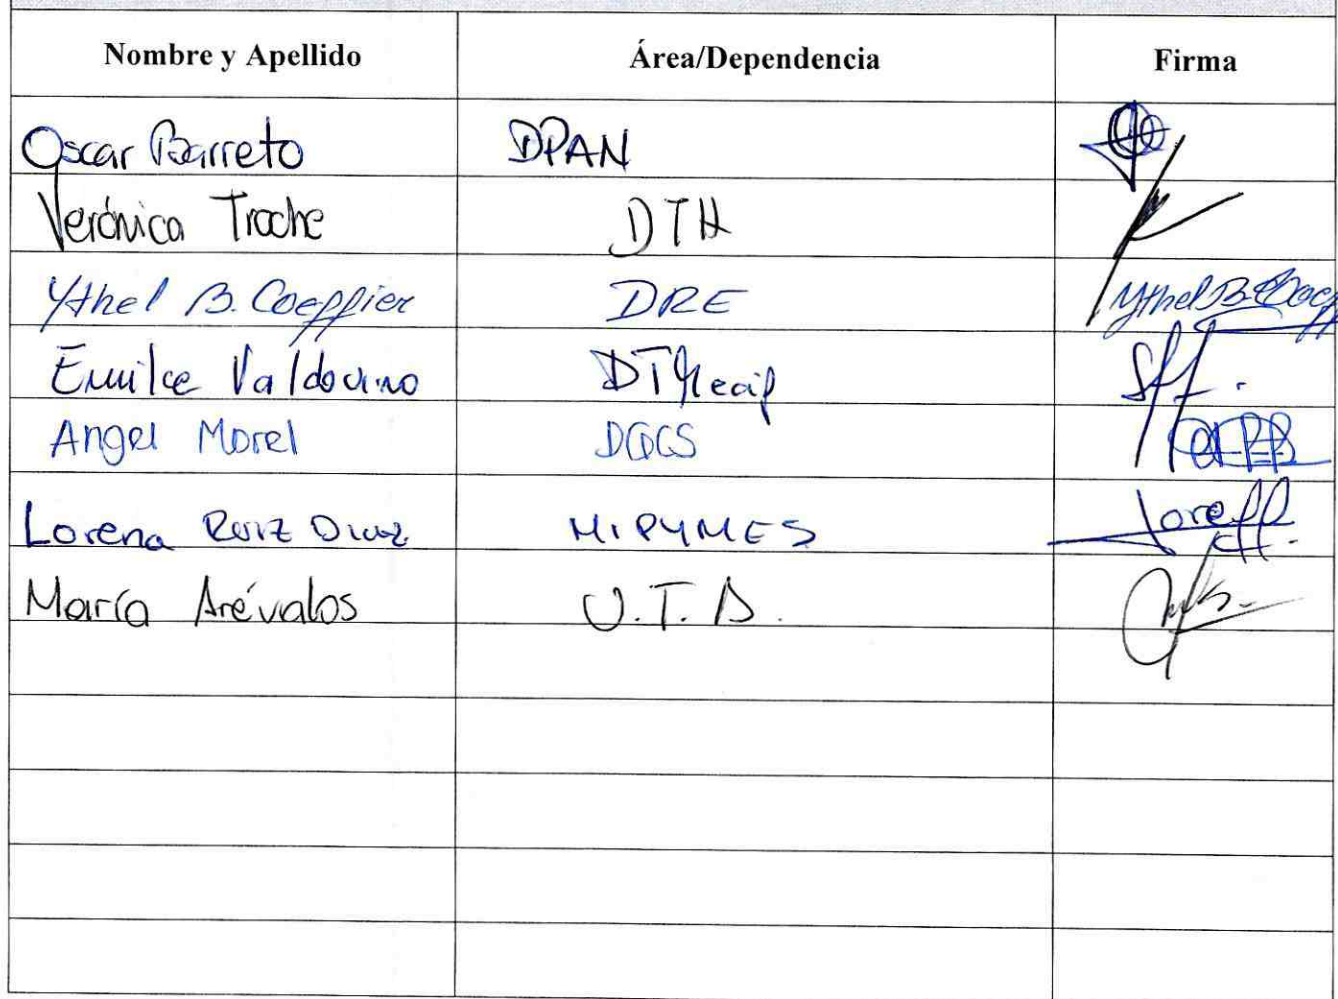 Nombre y Apellido Área/Dependencia Firma
Oscar Barreto DPAN
Verónica Troche DTH
Ythel B. Coeffier DRE Ythel B. Coeff
Emilce Valdovino
Angel Morel DGCS
Lorena Ruiz Diaz MIPYMES
María Arévalos U.T.A.